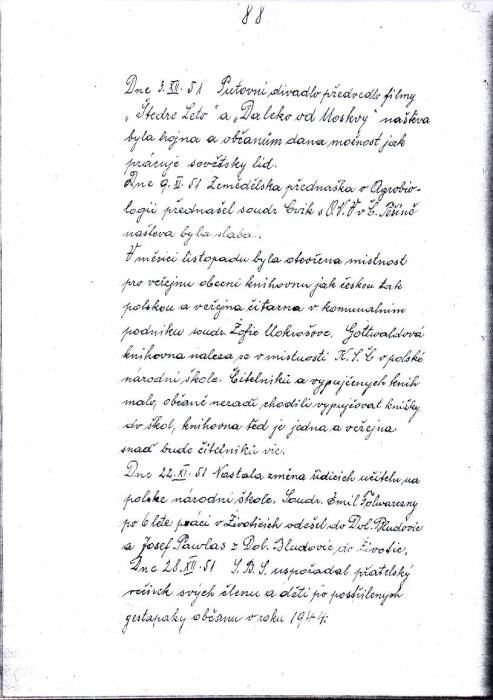 88
92
Dne 3.XII.51 Putovní divadlo předvedlo filmy
„Štedre Leto" a „Daleko od Moskvy" naštěva
byla hojna a občanům dana možnost jak
pracuje sovětsky lid.
Dne 9.XI.51 Zemědělska přednaška o Agrobio-
logii přednašel soudr. Cvik s O.N.V v Č. Těšíně
našteva byla slaba.
V měsici listopadu byla otevřena mistnost
pro veřejnu obecni knihovnu jak českou tak
polskou a veřejna čitarna v komunalnim
podniku soudr. Žofie Mokrošove. Gottwaldová
knihovna naleza se v mistnosti K.S.Č v polské
národní škole. Čitelníků a vypujčenych knih
malo, občaně neradi chodili vypujčovat knižky
do škol, knihovna teď je jedna a veřejna
snad bude čitelníků vic.
Dne 22.XI.51 Nastala změna řidicich učitelu na
polske národní škole. Soudr. Emil Folwarczny
po 6 lete práci v Životicich odešel do Dol. Bludovic
a Josef Pawlas z Dol. Bludovic do Životic.
Dne 28.XII.51 S.B.S. uspořadal přatelský
večirek svých členu a dětí po postřilenych
gestapaky občanu v roku 1944: